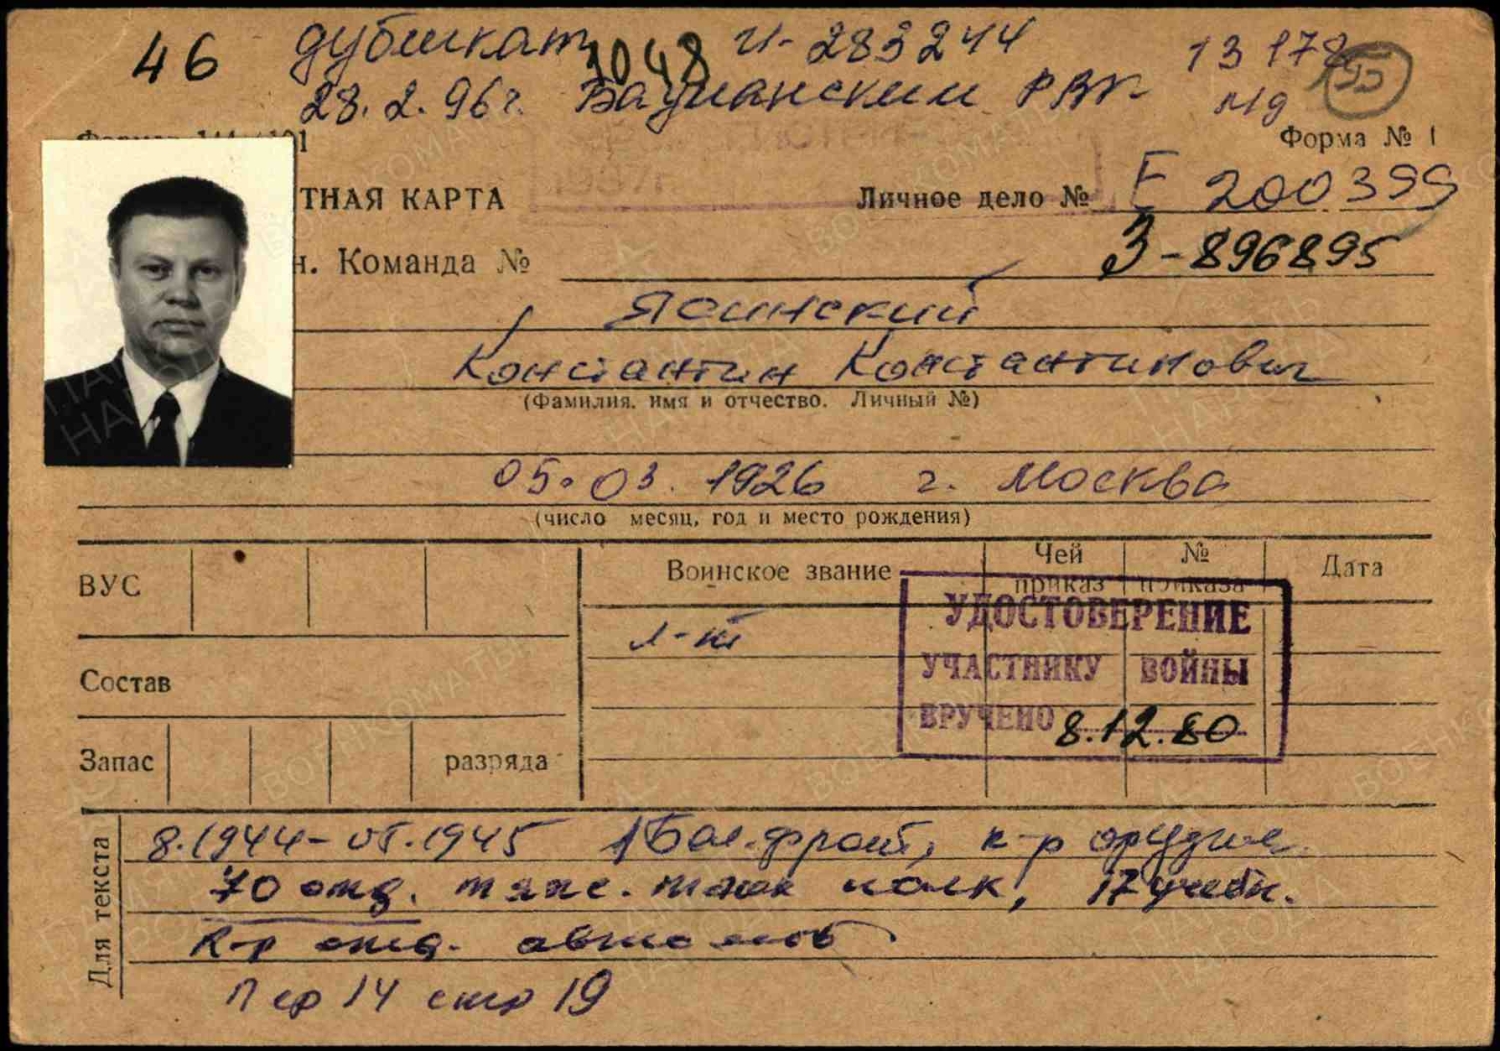 46 дубликат 1048 И-283244 13178 95
28.2.96г. Бауманским РВК
Форма № 1
ТНАЯ КАРТА Личное дело № Е 200399
н. Команда № З-896895
Ясинский
Константин Константинович
(Фамилия, имя и отчество. Личный №)
05.03.1926 г. Москва
(число месяц, год и место рождения)
ВУС Воинское звание Чей приказ № приказа Дата
л-т
УДОСТОВЕРЕНИЕ
УЧАСТНИКУ ВОЙНЫ
ВРУЧЕНО 8.12.80
Состав
Запас разряда
Для текста
8.1944-05.1945 1 Бел. фронт, к-р орудия
70 отд. тяж. танк полк, 17 учебн.
к-р отд. автоматов
Пер 14 стр 19
ПАМЯТЬ НАРОДА
ВОЕНКОМАТЫ